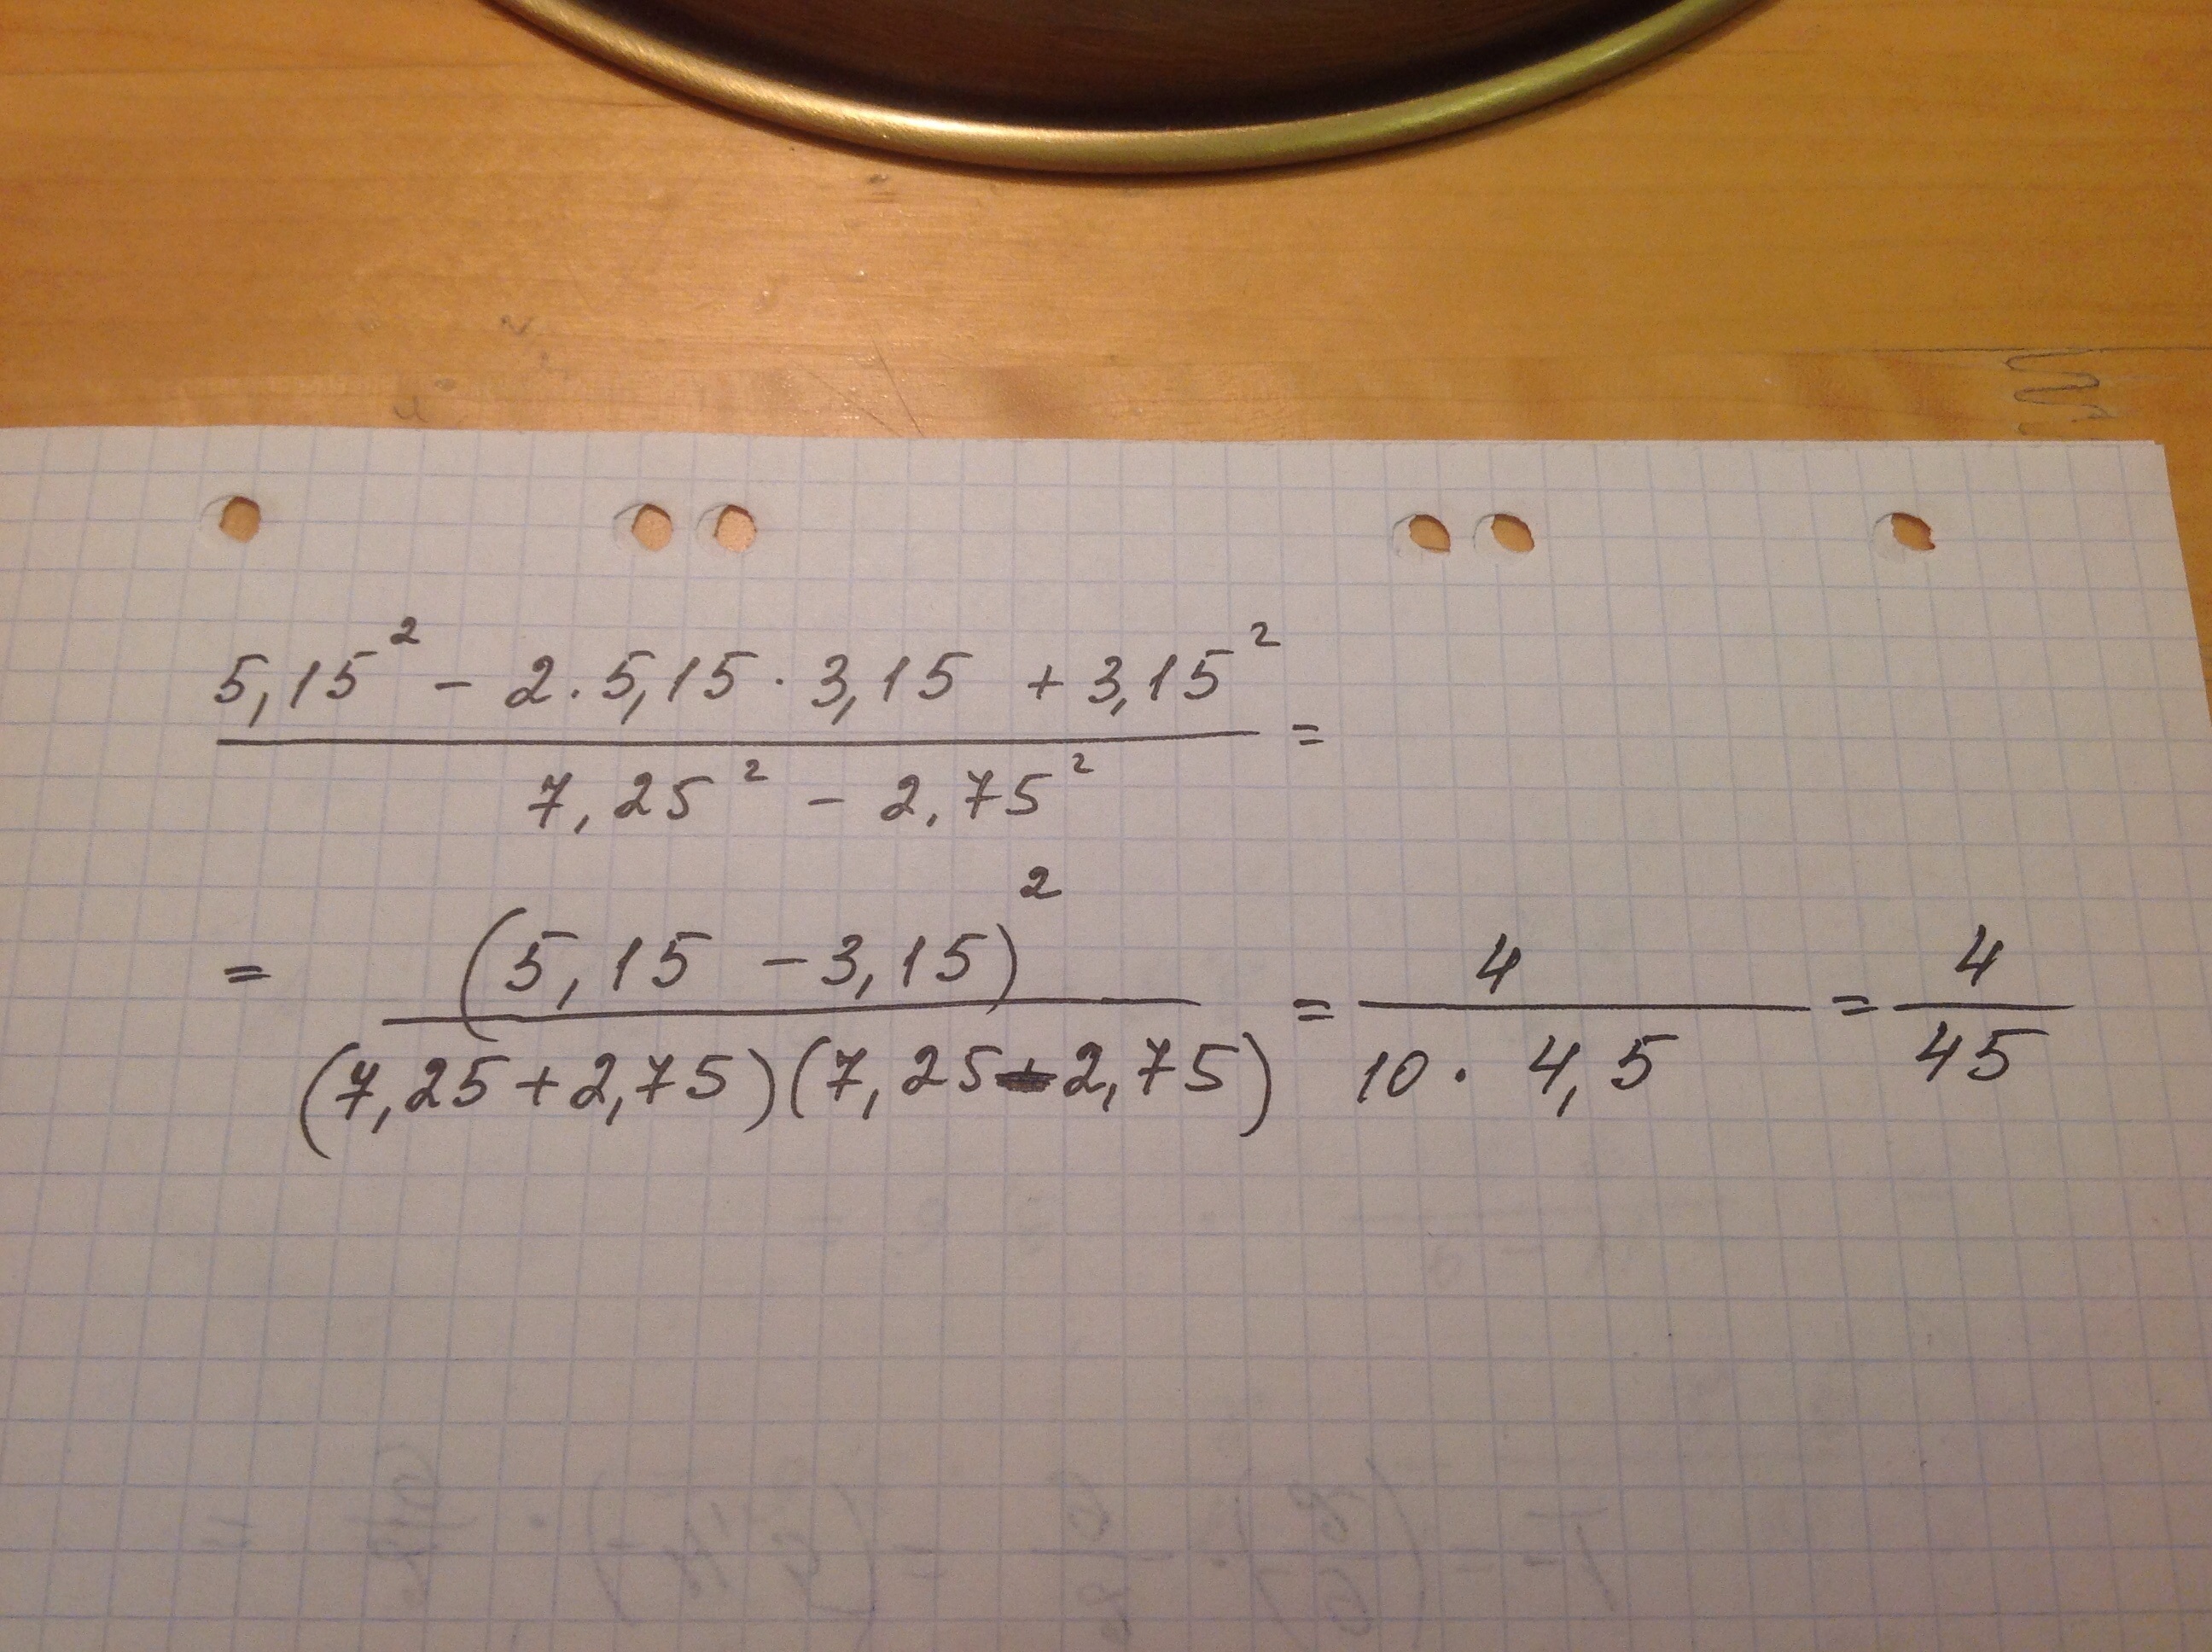 (5,15² - 2·5,15·3,15 + 3,15²) / (7,25² - 2,75²) =
= (5,15 - 3,15)² / (7,25+2,75)(7,25-2,75) = 4 / 10·4,5 = 4/45